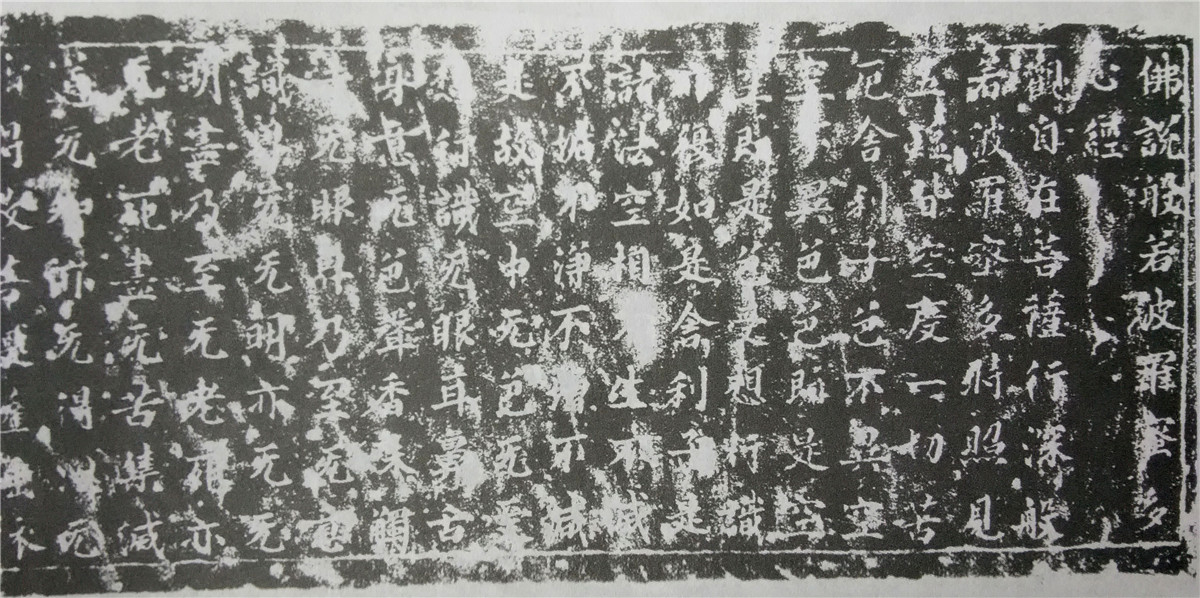 佛說般若波羅蜜多
心經
觀自在菩薩行深般
若波羅蜜多時照見
五蘊皆空度一切苦
厄舍利子色不異空
空異色色即是空
空即是色受想行識
亦復如是舍利子是
諸法空相生不滅
不垢不淨不增不減
是故空中无色无受
想行識无眼耳鼻舌
身意无色聲香味觸
无眼界乃至无意
識界无无明亦无无
明盡乃至无老死亦
无老死盡无苦集滅
道无智亦无得以无
得故菩提